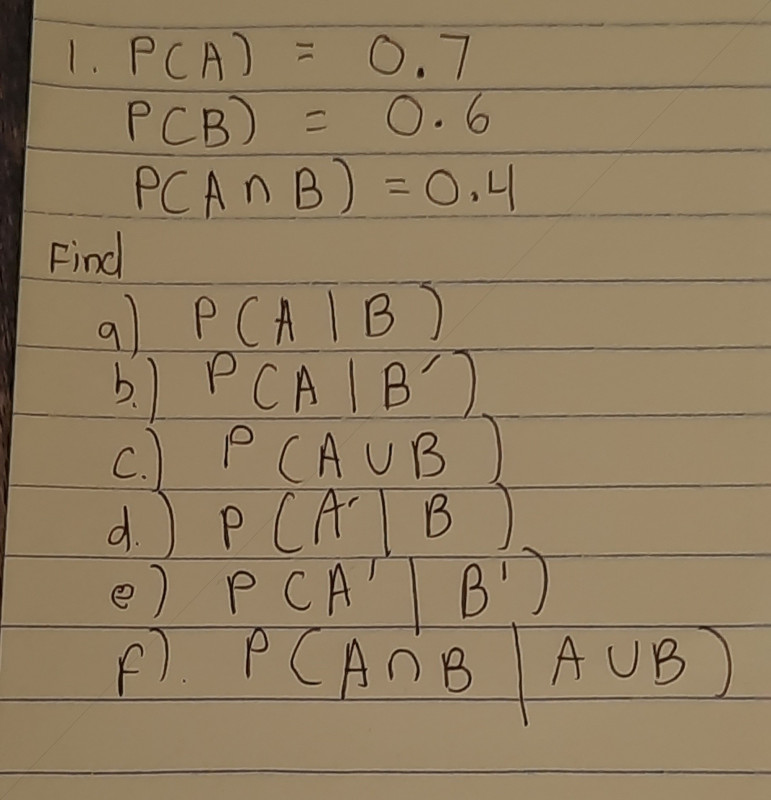 1. P(A) = 0.7
P(B) = 0.6
P(A∩B) = 0.4
Find
a) P(A|B)
b.) P(A|B′)
c.) P(A∪B)
d.) P(A′|B)
e) P(A'|B')
f). P(A∩B|A∪B)